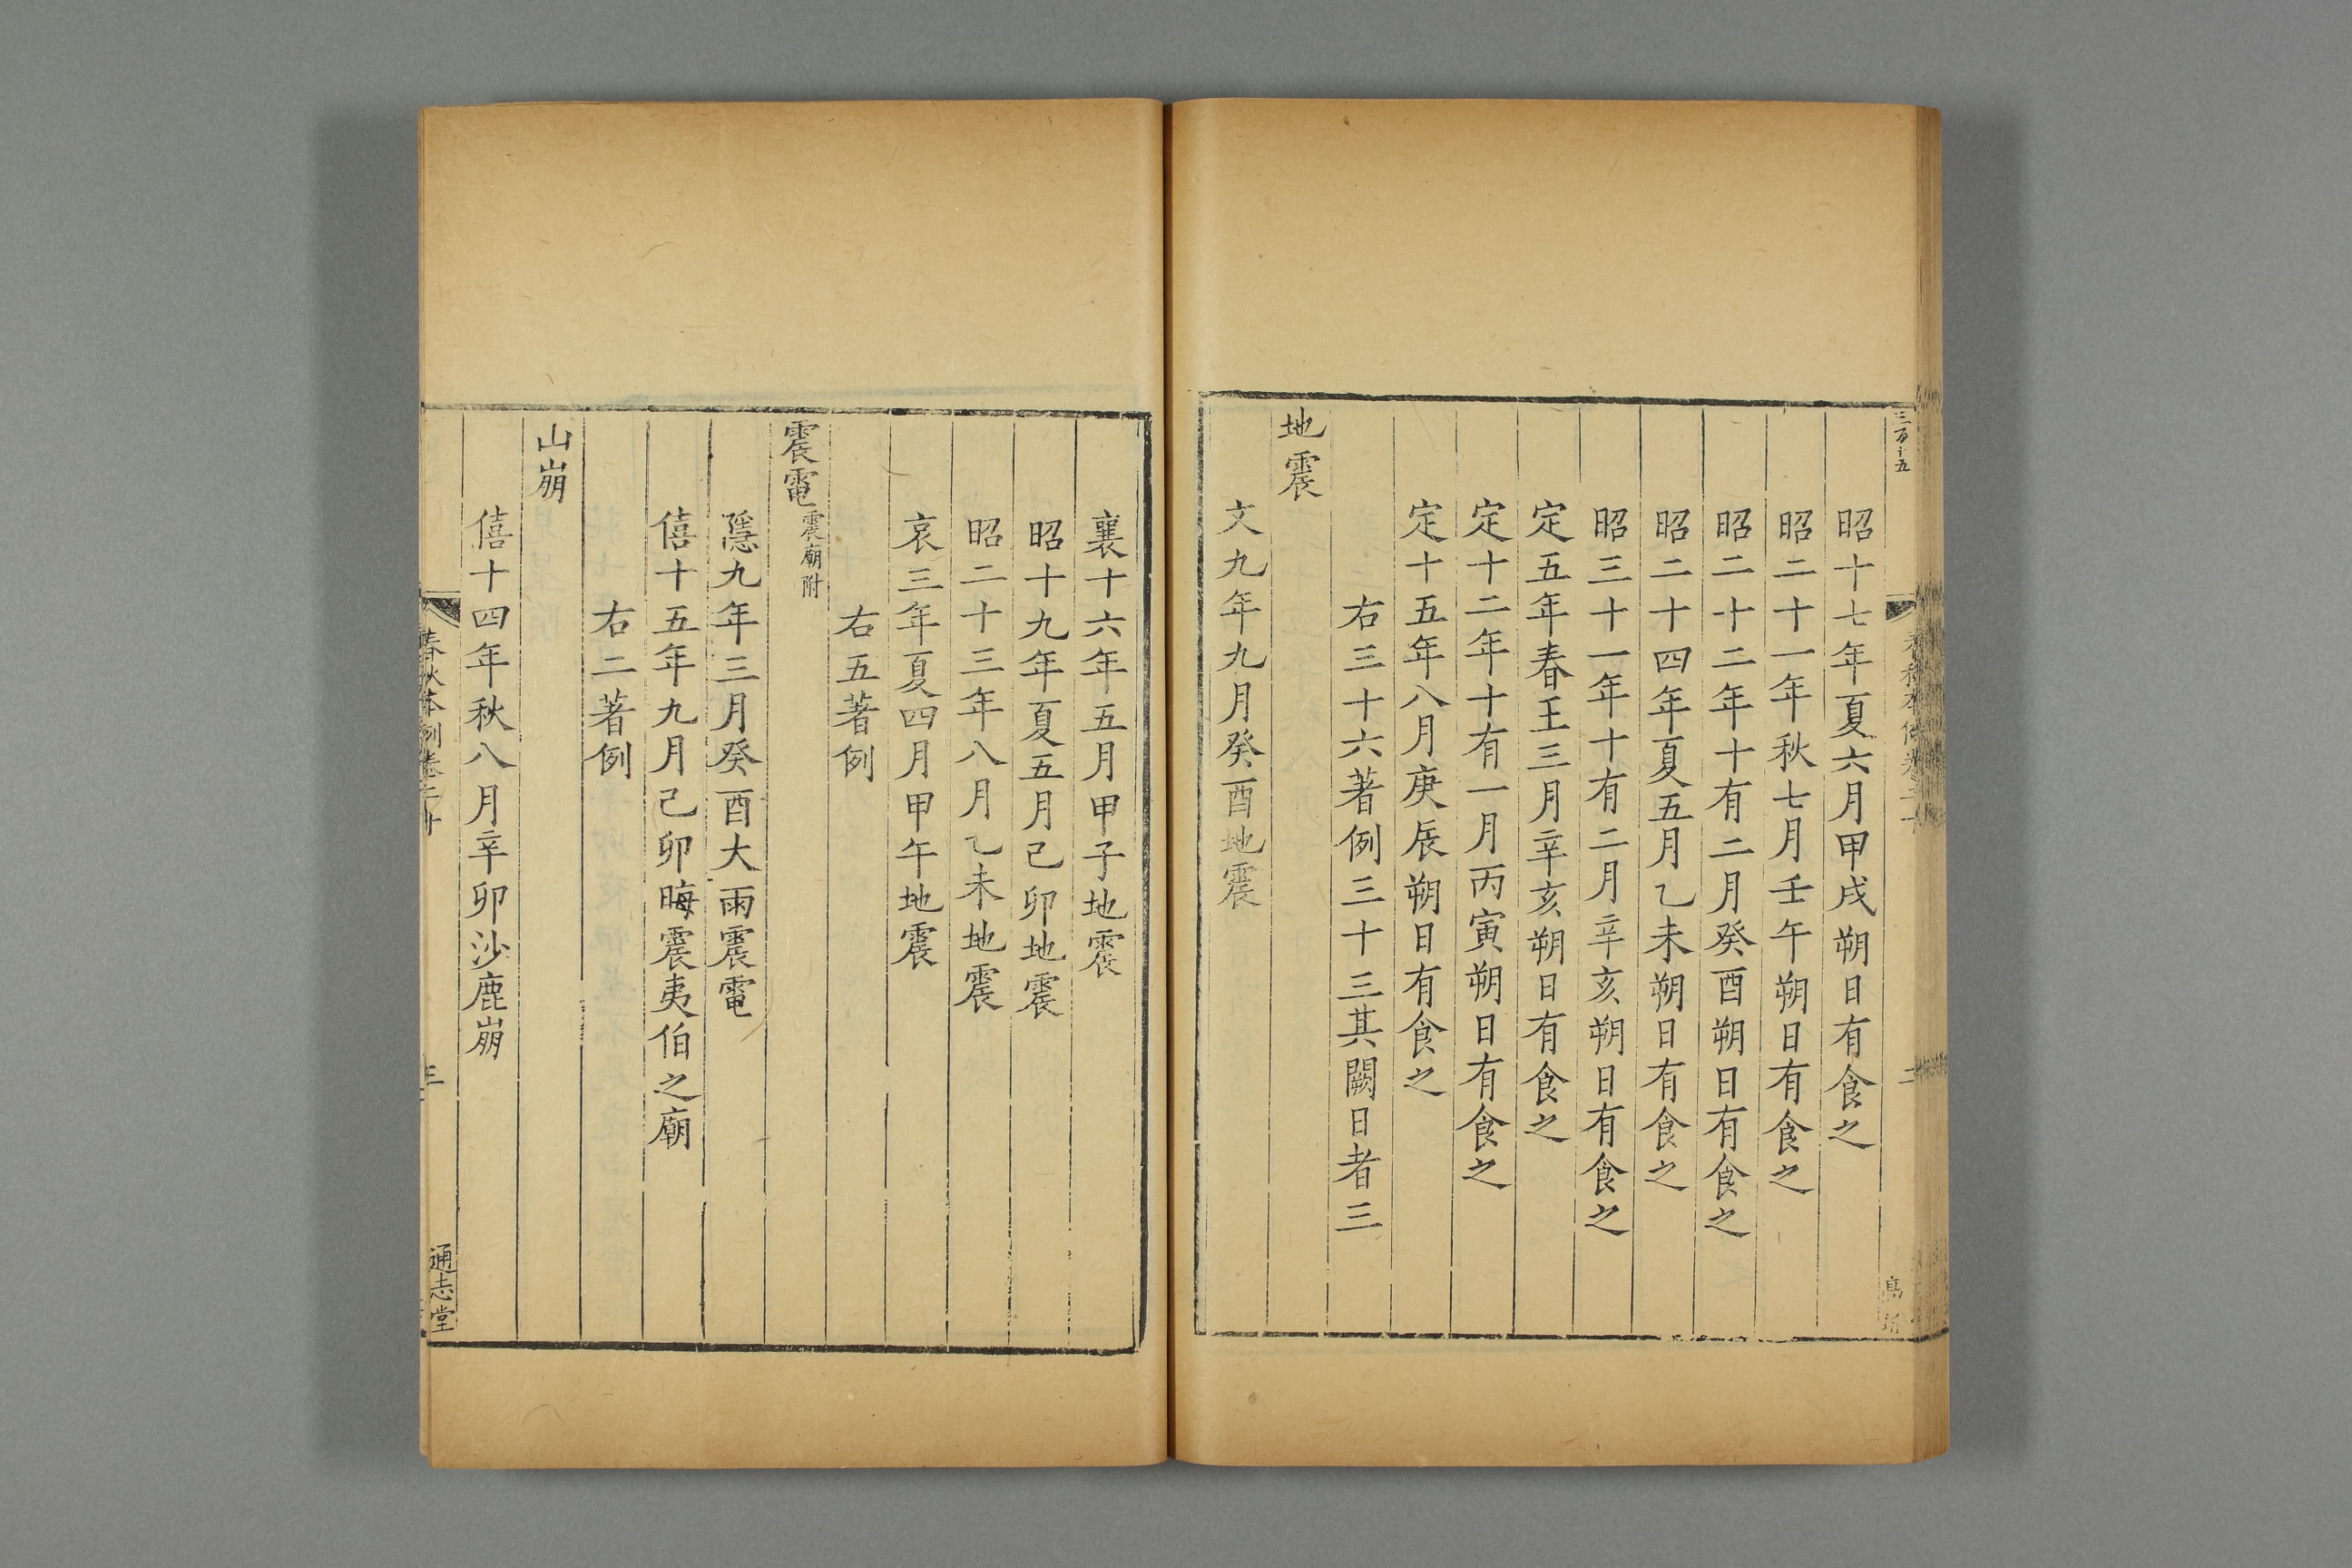 三百十五
昭十七年夏六月甲戌朔日有食之
昭二十一年秋七月壬午朔日有食之
昭二十二年十有二月癸酉朔日有食之
昭二十四年夏五月乙未朔日有食之
昭三十一年十有二月辛亥朔日有食之
定五年春王三月辛亥朔日有食之
定十二年十有一月丙寅朔日有食之
定十五年八月庚辰朔日有食之
右三十六著例三十三其闕日者三
地震
文九年九月癸酉地震
襄十六年五月甲子地震
昭十九年夏五月己卯地震
昭二十三年八月乙未地震
哀三年夏四月甲午地震
右五著例
震電震廟附
隱九年三月癸酉大雨震電
僖十五年九月己卯晦震夷伯之廟
右二著例
山崩
僖十四年秋八月辛卯沙鹿崩
春秋本例卷二十
三
通志堂